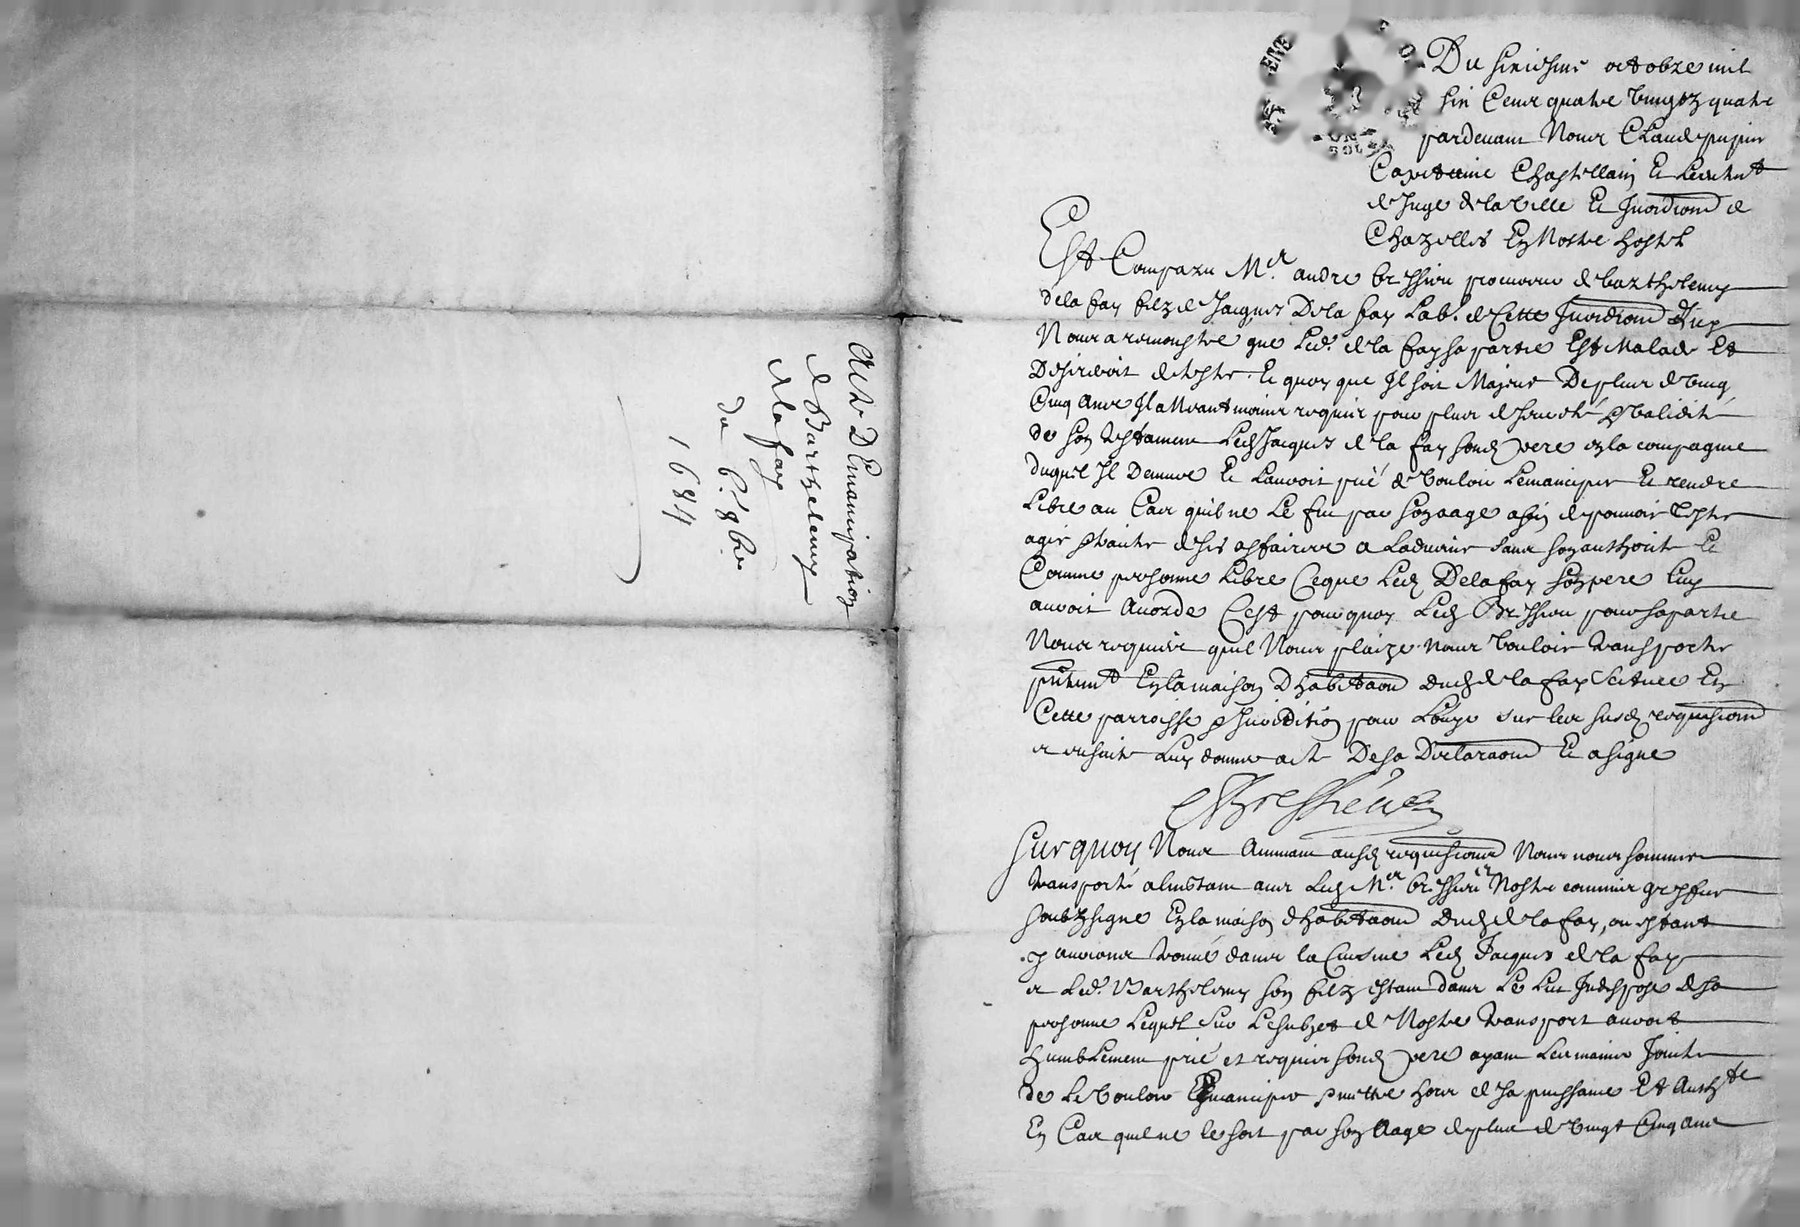 Acte D'Emancipation
de Barthelemy
de la fay
du 6.e 8bre
1684
Du sixiesme octobre mil
six Cens quatre vingtz quatre
pardevant Nous Claude pupier
Capitaine Chastellain Et Lieuten.t
de Juge de la ville Et Jurid.ion de
Chazelles En Nostre hostel
Est Comparu M.e andre bressieu procureur de barthelemy
dela fay filz de Jacques Dela fay Lab.r de Cette Jurid.ion
Nous a remonstré que Led. de la fay sa partie Est Malade Et
Desireroit de tester Et quoy que Il soit Majeur De plus de vingt
Cinq Ans Il a Neantmoins requis pour plus de seureté & Validité
de son testament Led. Jacques de la fay sond. pere en la compagnie
duquel Il Demeure Et Lauroit prié de vouloir Lemanciper Et rendre
Libre au Cas quil ne Le fut par son aage afin de pouvoir tester
agir & traiter de ses affaires a Ladvenir sans son authorité Et
Comme personne Libre Ce que Led. Delafay son pere Luy
auroit Accordé C'est pourquoy Led. Bressieu pour sa partie
Nous requiert quil Nous plaize nous vouloir transporter
presentem.t En la maison D'habita.on Dud. de la fay Scituee En
Cette parroisse & Juridition pour Louyr sur les susd. requisi.ons
et ensuite Luy donner acte De sa Declara.on Et a signé
Bressieu
Sur quoy Nous Amenant ausd. requisi.ons Nous nous sommes
transporté a linstant avec Led. M.e bressieu & Nostre commis greffier
soubzsigné En la maison d'habita.on Dud. de la fay, ou estant
y aurions trouvé dans la Cuisine Led. Jacques de la fay
et Led. Barthelemy son filz estant dans Le Lict Indisposé de sa
personne Lequel sur Le subjet de Nostre transport auroit
humblement prié et requis sond. pere ayant Les mains Jointes
de Le vouloir Emanciper & mettre hors de sa puissance Et Auth.té
En Cas quil ne le soit par son Aage de plus de vingt Cinq ans